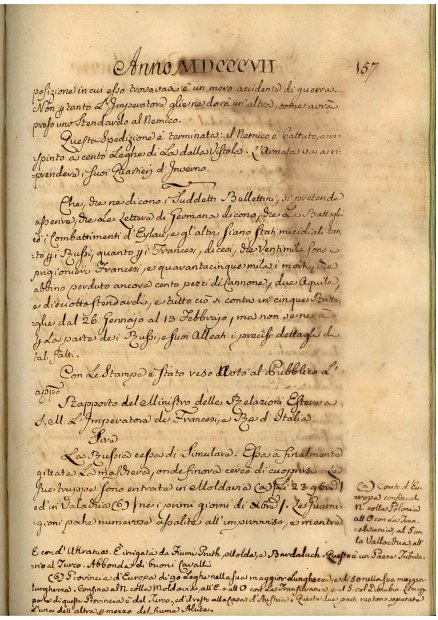 Anno MDCCCVII
157
posizione in cui esso trovavasi è un mero accidente di guerra.
Non p tanto L'Imperatore gliene darà un'altra, come avrà
preso uno Stendardo al Nemico.
Questa Spedizione è terminata: il Nemico è battuto, e ri-
spinto a cento Leghe di là dalla Vistola. L'Armata va a ri-
prendere i suoi Quartieri d'Inverno.
Che, che ne dicono i suddetti Bullettini, si pretende
asserire, che le Lettere di Germania dicono, che la Battaglia
ed i Combattimenti d'Eylau, e gl'altri siano stati micidiali tan-
to p i Russi, quanto p i Francesi, dicesi, che ventimila sono i
prigionieri Francesi, e quarantacinque mila i morti, che
abbino perduto ancora cento pezzi di Cannone, due Aquile,
e dieciotto stendardi, e tutto ciò si conta in cinque Batta-
glie dal 26 Gennajo al 13 Febbrajo, ma non se ne à
p la parte dei Russi e suoi Alleati i precisi dettagli di
tal fatti.
Con le Stampe è stato reso Noto al Pubblico l'
appo
Rapporto del Ministro delle Relazioni Estere a
S. M. L'Imperatore de' Francesi, e Re d'Italia
Sire
La Russia cessa di simulare: Essa à finalmente
gittata la maschera, onde finora cercò di cuoprirsi. Le
sue truppe sono entrate in Moldavia (a) li 23 9bre
ed in Valachia (b) nei primi giorni di Xbre. Le guarni-
gioni poche numerose assalite all'improvviso, e mentre
(a) Cont. d'Eu-
ropa confin. al
N. colla Polonia
all'O con la Tran-
silvania, al S. con
la Vallacchia all'
E. con l'Ukrania. È irrigata da Fiumi Pruth, Moldola, e Bardaluch. Questo è un Paese Tributa-
rio al Turco. Abbonda di buoni Cavalli
(b) Provincia d'Europa di 90 Leghe nella sua maggior lunghezza, e di 50 nella sua maggior
larghezza. Confina al N. colla Moldavia, all'E. e all'O con la Transilvania e al S. col Danubio. La mag-
parte di questa Provincia è del Turco, ed il resto alla Casa d'Austria. Queste due parti restono separate
L'una dell'altra p mezzo del fiume Aluta.